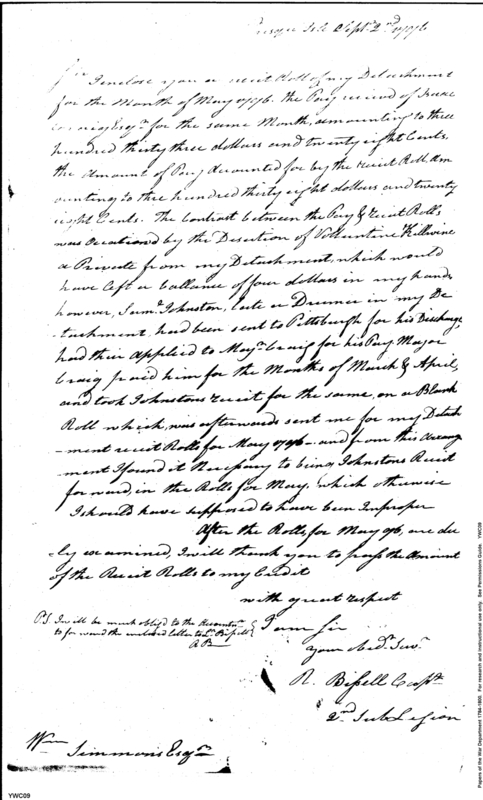 Presque Isle Septr. 2nd 1796
Sir I enclose you a receit Roll of my Detachment
for the Month of May 1796. the Pay received of Isaac
Craig Esqr. for the same Month, amounting to three
hundred thirty three dollars and twenty eight Cents,
the amount of Pay Accounted for by the receit Roll, am
ounting to three hundred thirty eight dollars and twenty
eight Cents. The Contrast between the Pay & receit Rolls
was Occationed by the Desertion of Valluntine Killwine
a Private from my Detachment, which would
have left a ballance of four dollars in my hands
however, Saml. Johnston, late a Drumer in my De
-tachment, had been sent to Pittsburgh for his Discharge,
had their Applied to Majr. Craig for his Pay. Major
Craig paid him for the Months of March & April,
and took Johnstons receit for the same, on a Blank
Roll which, was afterwards sent me for my Detach
-ment receit Rolls for May 1796 - and from this Arrang
ment I found it Necessary to bring Johnstons Receit
forward, in the Rolls for May. which otherwise
I should have supposed to have been Improper
After the Rolls, for May 96, are du
-ly examined, I will thank you to pass the Amount
of the Receit Rolls to my Credit
with great respect
P.S. I will be much oblig'd to the Accountn.
to forward the enclosed letter to Lt. Bissell
RB
I am Sir
your Obedt. Servt.
R. Bissell Capt.
2nd Sub Legion
Wm
Simmons Esqr.
YWC09
Papers of the War Department 1784-1800. For research and instructional use only. See Permissions Guide. YWC09